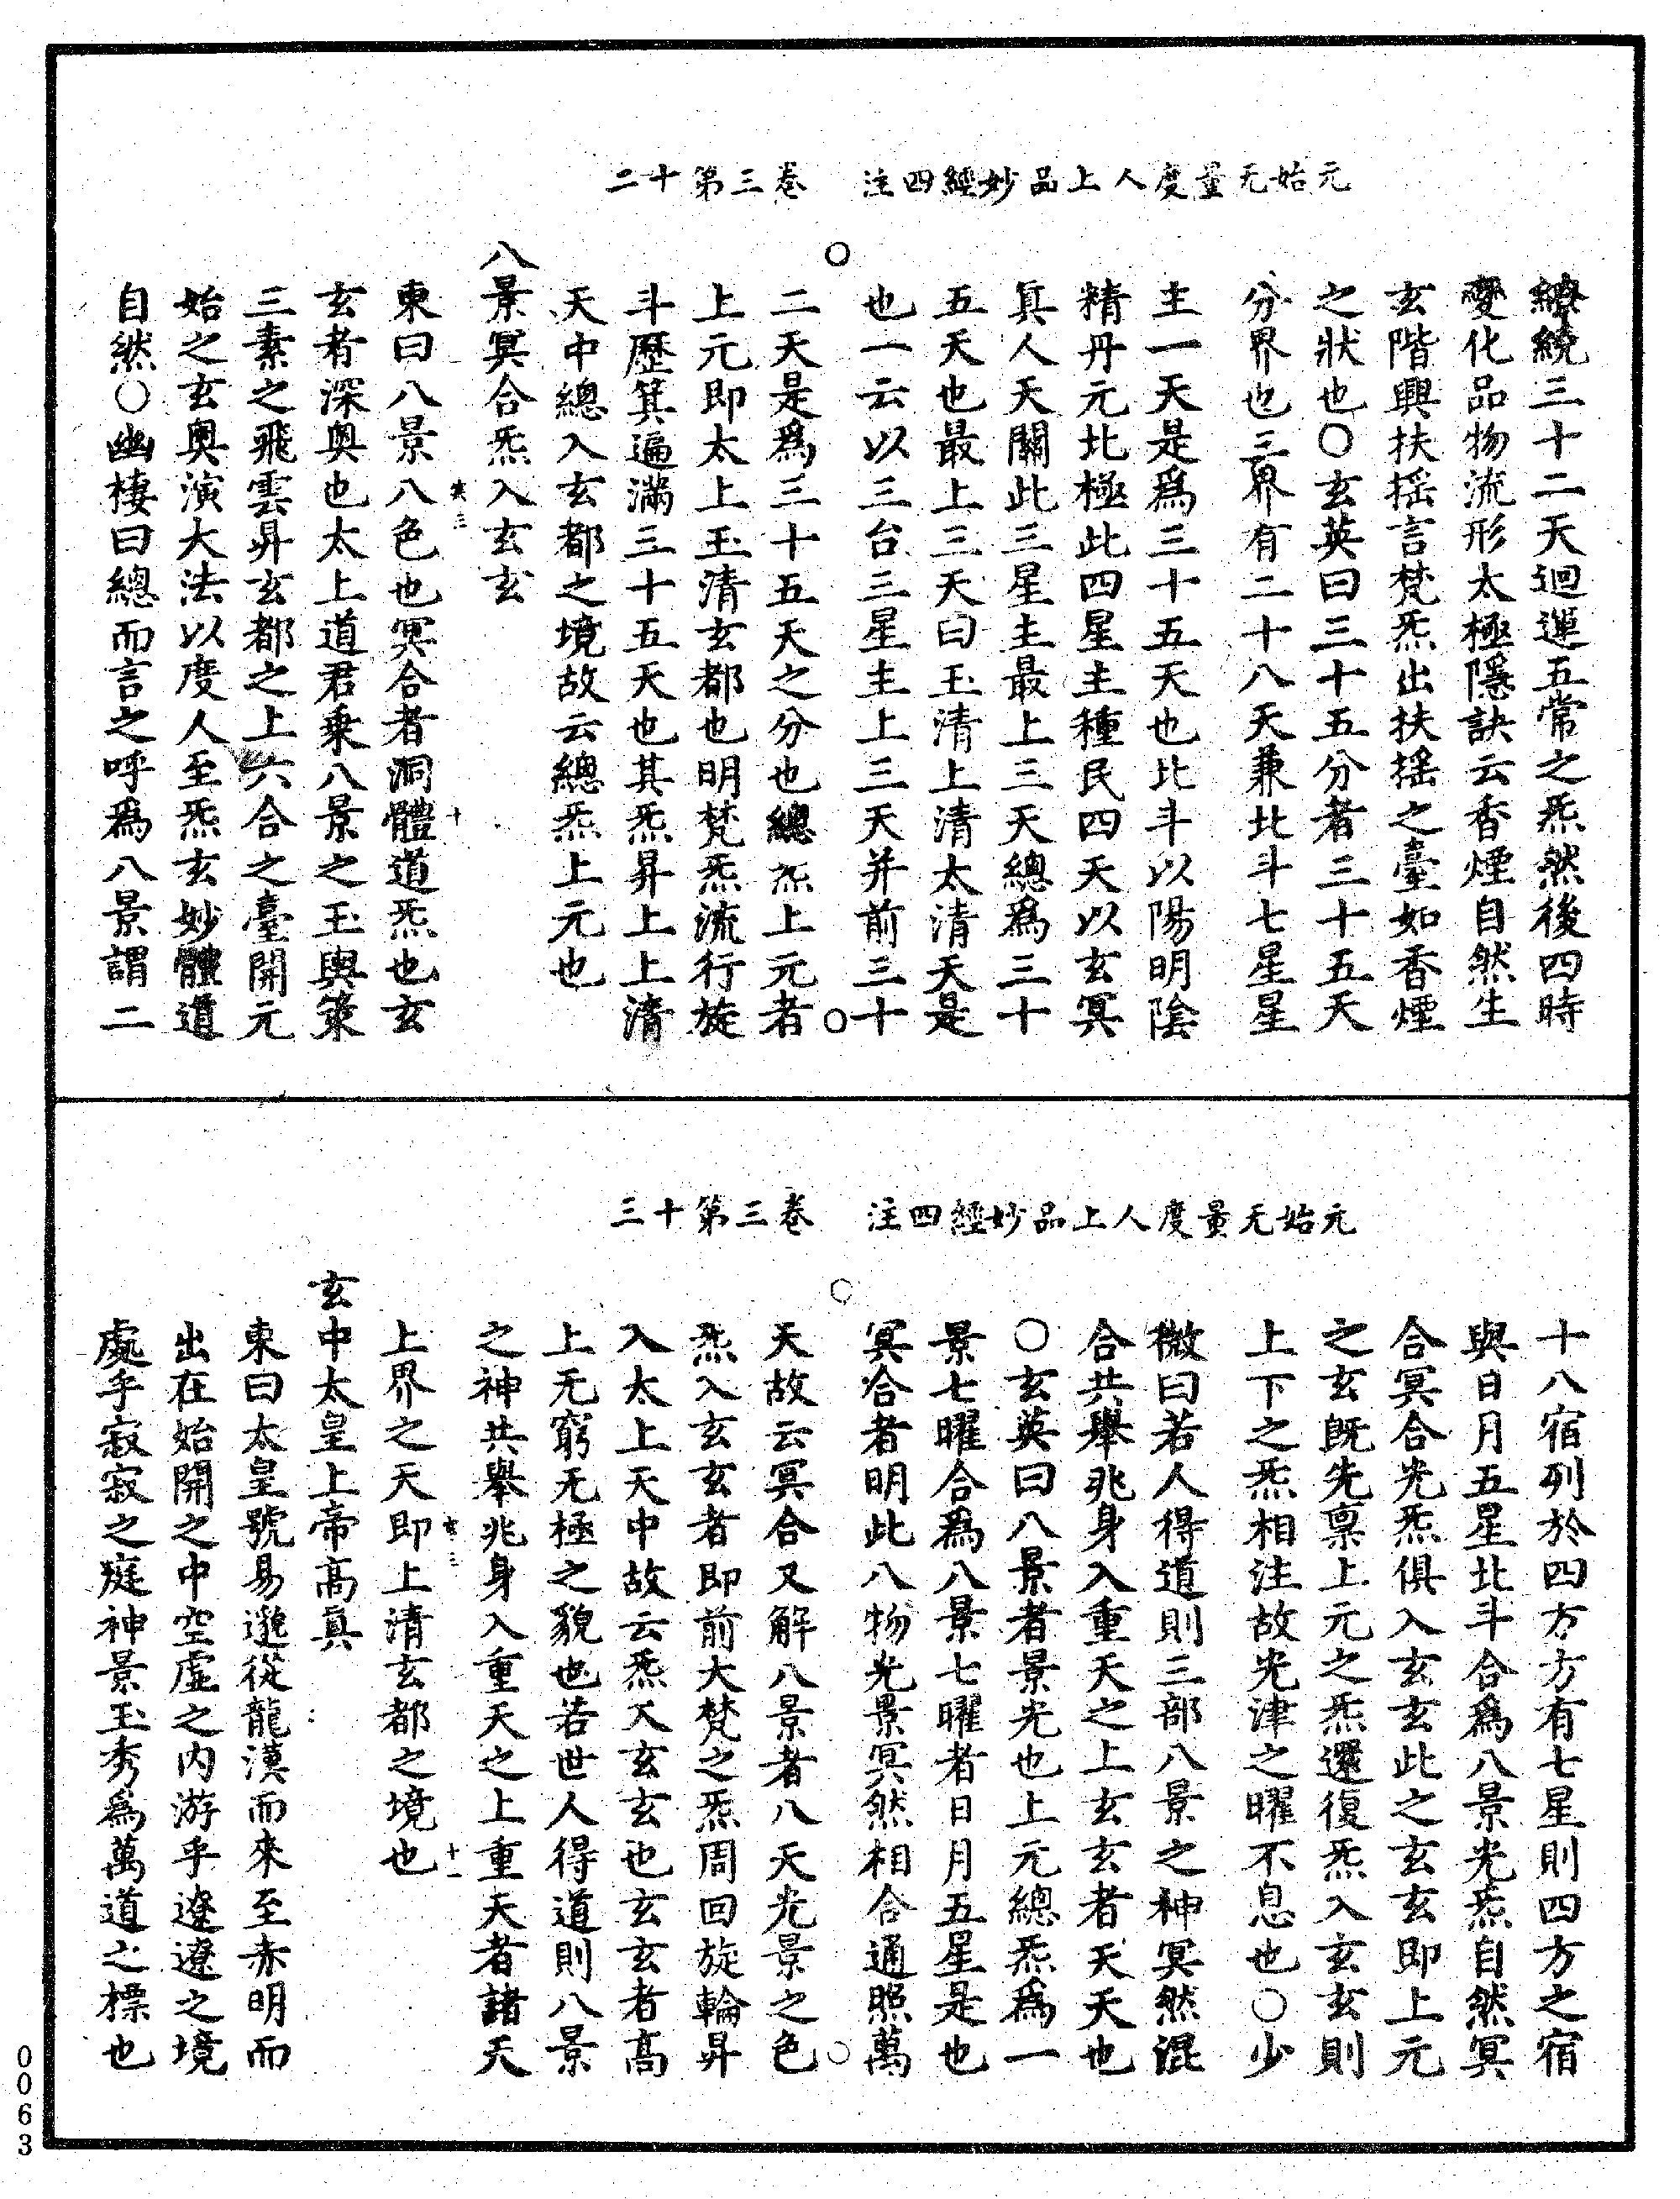 元始无量度人上品妙經四注　卷三第十二
繚繞三十二天迴運五常之炁然後四時
變化品物流形太極隱訣云香煙自然生
玄階興扶揺言梵炁出扶揺之臺如香煙
之狀也○玄英曰三十五分者三十五天
分界也三界有二十八天兼北斗七星星
主一天是爲三十五天也北斗以陽明陰
精丹元北極此四星主種民四天以玄冥
真人天關此三星主最上三天總爲三十
五天也最上三天曰玉清上清太清天是
也一云以三台三星主上三天并前三十
二天是爲三十五天之分也總炁上元者
上元即太上玉清玄都也明梵炁流行旋
斗歷箕遍滿三十五天也其炁昇上上清
天中總入玄都之境故云總炁上元也
八景冥合炁入玄玄
寒三　十
東曰八景八色也冥合者洞體道炁也玄
玄者深奥也太上道君乗八景之玉輿策
三素之飛雲昇玄都之上六合之臺開元
始之玄奥演大法以度人至炁玄妙體道
自然○幽棲曰總而言之呼爲八景謂二
元始无量度人上品妙經四注　卷三第十三
十八宿列於四方方有七星則四方之宿
與日月五星北斗合爲八景光炁自然冥
合冥合光炁俱入玄玄此之玄玄即上元
之玄既先禀上元之炁還復炁入玄玄則
上下之炁相注故光津之曜不息也○少
微曰若人得道則三部八景之神冥然混
合共舉兆身入重天之上玄玄者天天也
○玄英曰八景者景光也上元總炁爲一
景七曜合爲八景七曜者日月五星是也
冥合者明此八物光景冥然相合通照萬
天故云冥合又解八景者八天光景之色
炁入玄玄者即前大梵之炁周回旋輪昇
入太上天中故云炁入玄玄也玄玄者髙
上无窮无極之貌也若世人得道則八景
之神共舉兆身入重天之上重天者諸天
寒三　十一
上界之天即上清玄都之境也
玄中太皇上帝髙真
東曰太皇號易邈從龍漢而來至赤明而
出在始開之中空虚之内游乎遼遼之境
處乎寂寂之庭神景玉秀爲萬道之標也
0063